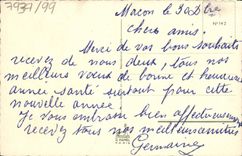 7937/99
Macon le 30 Dbre
N° 142
chers amis.
Merci de vos bons souhaits
recevez de nous deux, tous nos
meilleurs vœux de bonne et heureuse
année santé surtout pour cette
nouvelle année
Je vous embrasse bien affectueusement
recevez tous nos meilleurs amitiés
Germaine